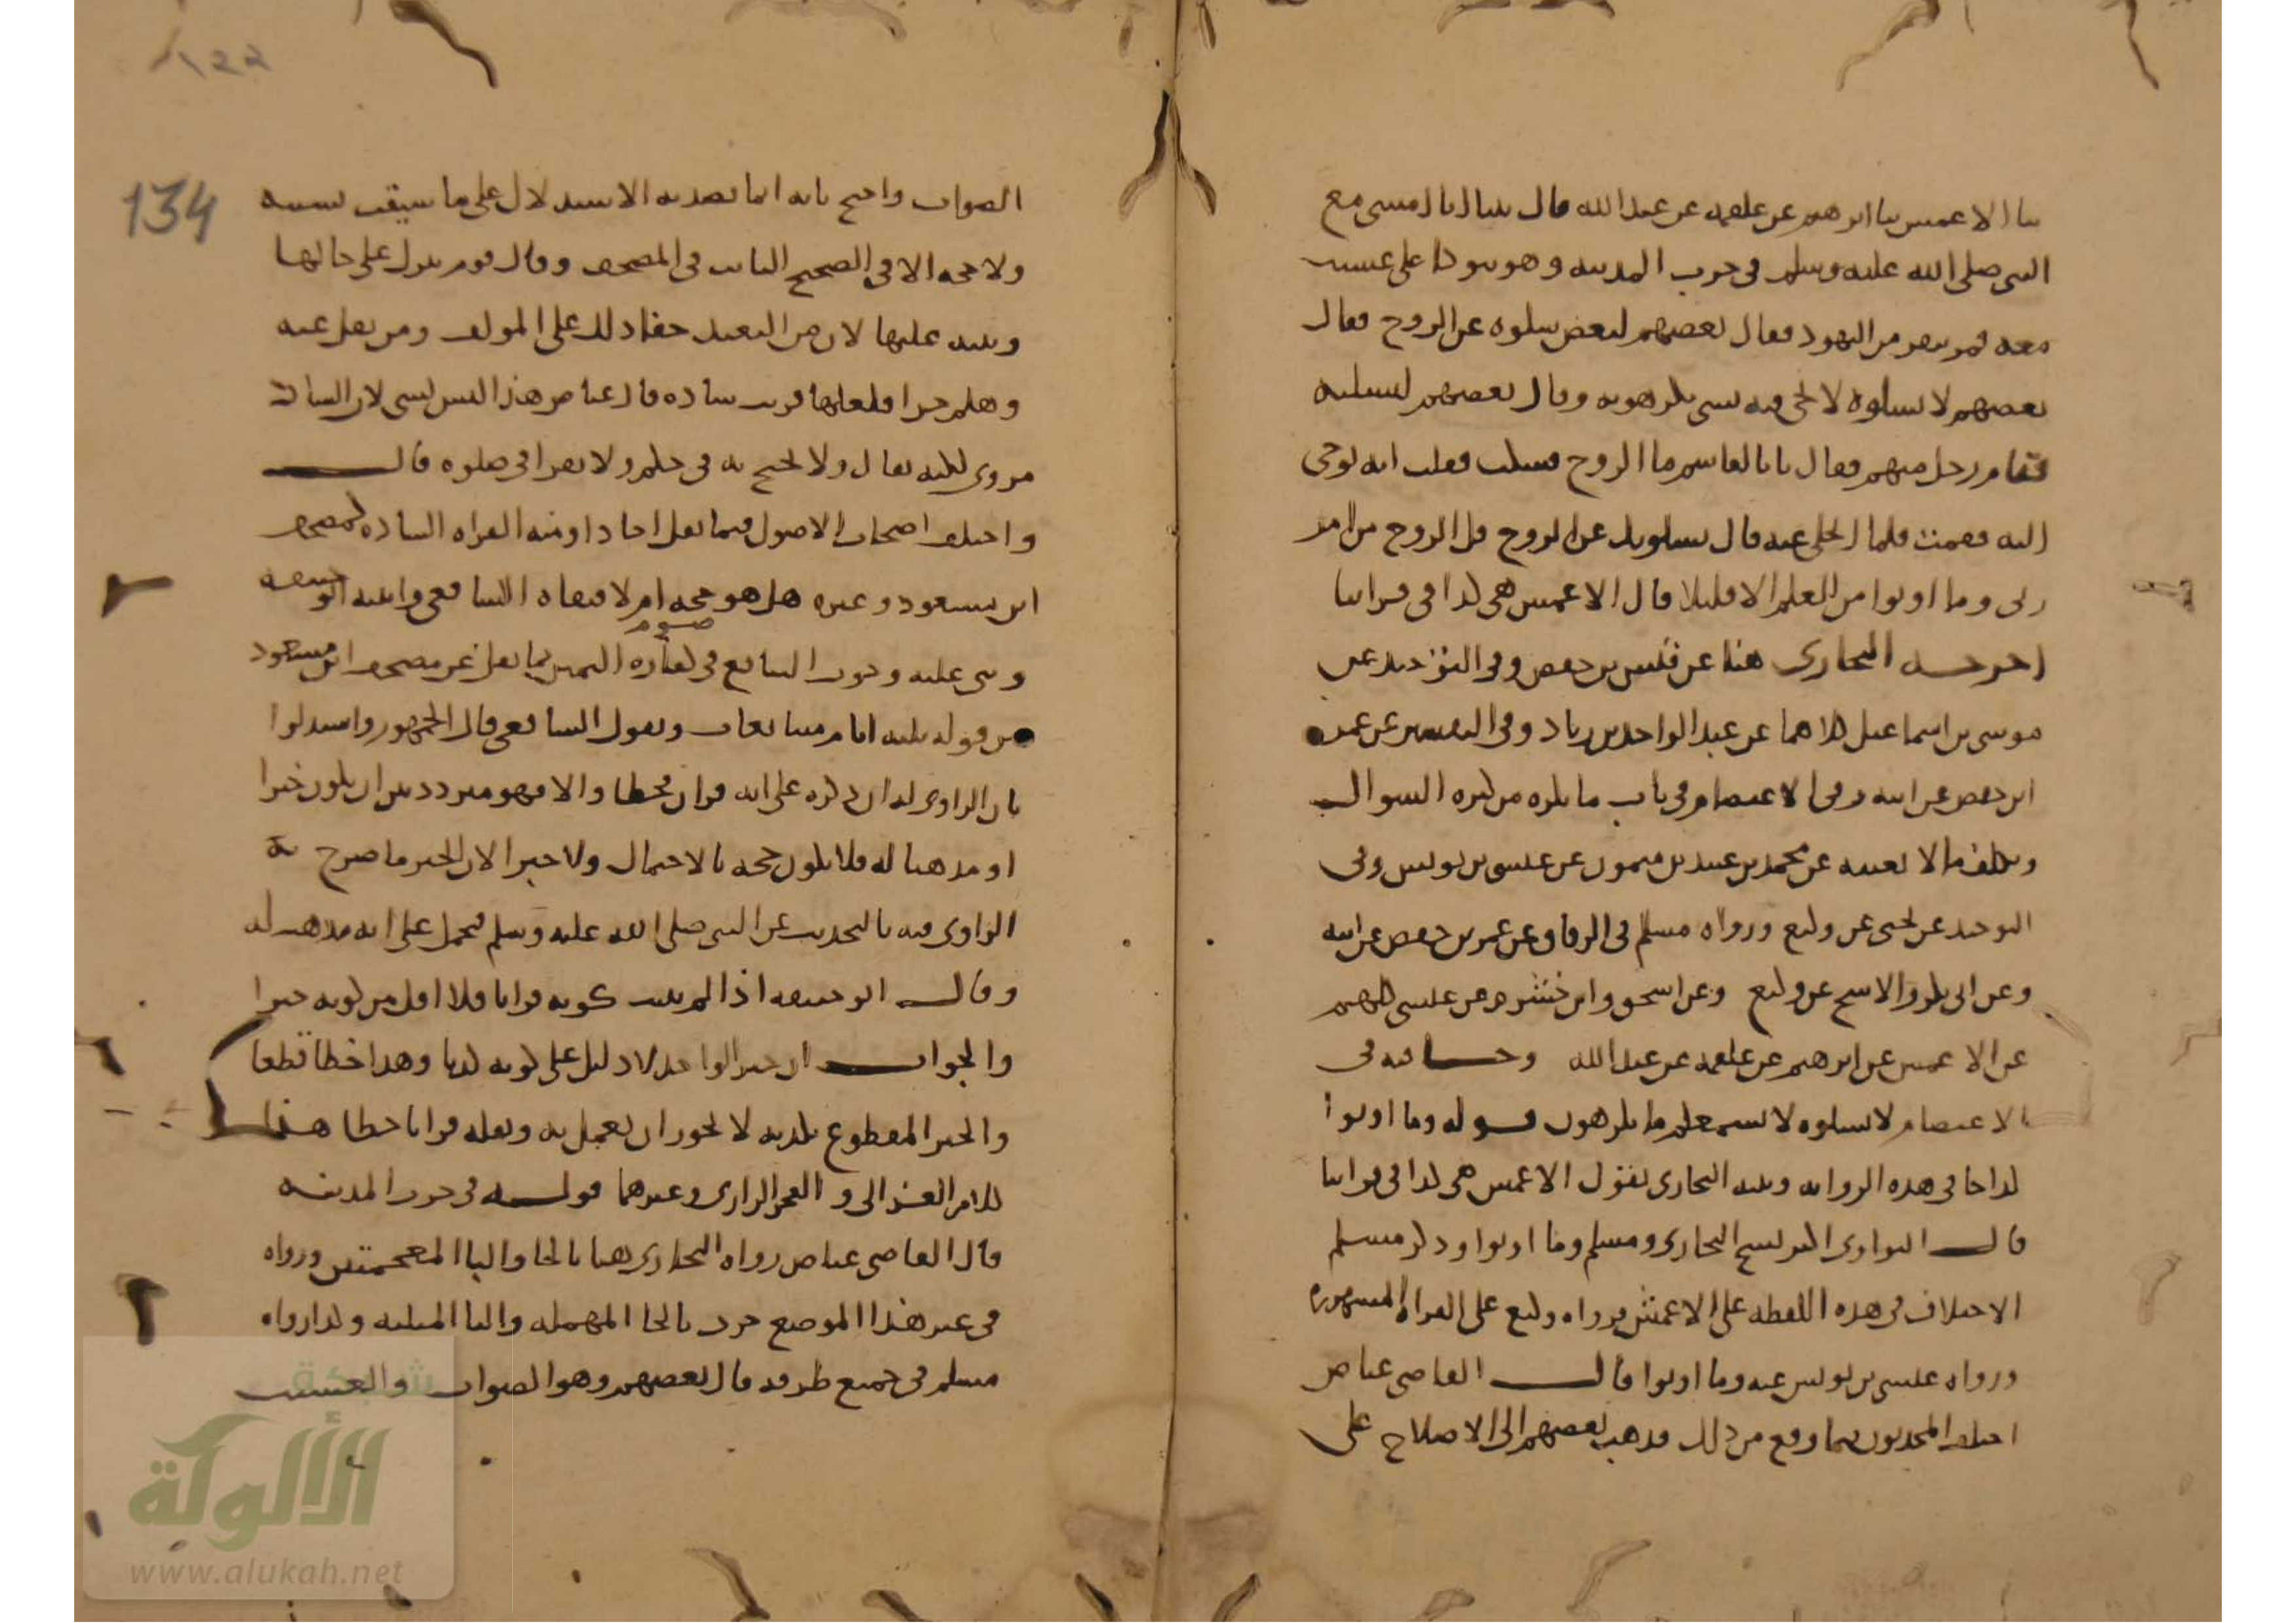 ثنا الاعمش ثنا ابرهيم عن علقمة عن عبد الله قال بينا انا امشي مع
النبي صلى الله عليه وسلم في خرب المدينة وهو يتوكا على عسيب
معه فمر بنفر من اليهود فقال بعضهم لبعض سلوه عن الروح فقال
بعضهم لا تسلوه لا يجي فيه بشي تكرهونه وقال بعضهم لنسلنه
فقام رجل منهم فقال يابا القاسم ما الروح فسكت فقلت انه يوحى
اليه فقمت فلما انجلى عنه قال يسلونك عن الروح قل الروح من امر
ربي وما اوتوا من العلم الا قليلا قال الاعمش هي كذا في قراتنا
اخرجه البخاري هنا عن قيس بن حفص وفي التوحيد عن
موسى بن اسماعيل كلاهما عن عبد الواحد بن زياد وفي التفسير عن عمر
ابن حفص عن ابيه وفي الاعتصام في باب ما يكره من كثرة السوال
وتكلف ما لا يعنيه عن محمد بن عبيد بن ميمون عن عيسى بن يونس وفي
التوحيد عن يحيى عن وكيع ورواه مسلم في الرقاق عن عمر بن حفص عن ابيه
وعن ابي بكر والاشج عن وكيع وعن اسحق وابن خشرم عن عيسى كلهم
عن الاعمش عن ابرهيم عن علقمة عن عبد الله وجـا فيه في
الاعتصام لا تسلوه لا يسمعكم ما تكرهون قوله وما اوتوا
كذا جا في هذه الرواية ونبه البخاري بقول الاعمش هي كذا في قراتنا
قال النواوي اكثر نسخ البخاري ومسلم وما اوتوا وذكر مسلم
الاختلاف في هذه اللفظه على الاعمش فرواه وكيع على القراه المشهوره
ورواه عيسى بن يونس عنه وما اوتوا قال القاضي عياض
اختلف المحدثون فيما وقع من ذلك فذهب بعضهم الى الاصلاح على
134
الصواب واحتج بانه انما قصد به الاستدلال على ما سيقت بسببه
ولا حجه الا في الصحيح الثابت في المصحف وقال قوم تترك على حالها
وينبه عليها لان من البعيد خفا ذلك على المولف ومن نقل عنه
وهلم جرا فلعلها قريت شاذه قال عياض هذا ليس بشي لان الشاذ
مروي لكنه يقال ولا يحتج به في حكم ولا يقرا في صلوه قال
واختلف اصحاب الاصول فيما نقل احادا ومنه القراه الشاذه كمصحف
ابن مسعود وغيره هل هو حجه ام لا فنفاه الشافعي واثبته ابو حنيفه
وبنى عليه وجوب التتابع في صوم كفاره اليمين بما نقل عن مصحف ابن مسعود
من قوله ثلثه ايام متتابعات وبقول الشافعي قال الجمهور واستدلوا
بان الراوي له ان ذكره على انه قران فخطا والا فهو متردد بين ان يكون خبرا
او مذهبا له فلا يكون حجه بالاحتمال ولا خبرا لان الخبر ما صرح به
الراوي فيه بالتحديث عن النبي صلى الله عليه وسلم فيحمل على انه مذهب له
وقال ابو حنيفه اذا لم يثبت كونه قرانا فلا اقل من كونه خبرا
والجواب ان خبر الواحد لا دليل على كونه كذبا وهذا خطا قطعا
والخبر المقطوع بكذبه لا يجوز ان يعمل به ونقله قرانا خطا هذا
كلام الغزالي والفخر الرازي وغيرهما قوله في خرب المدينه
قال القاضي عياض رواه البخاري هنا بالخا والبا المعجمتين ورواه
في غير هذا الموضع حرث بالحا المهمله والثا المثلثه وكذا رواه
مسلم في جميع طرقه قال بعضهم وهو الصواب والعسيب
شبكة
الألوكة
www.alukah.net